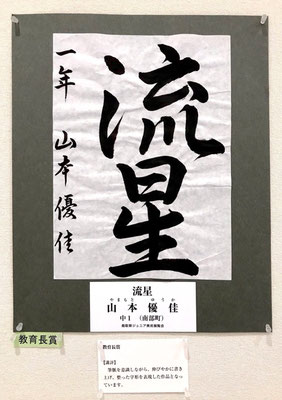 流星
一年 山本優佳
流星
やまもと ゆうか
山本 優佳
中1 (南部町)
鳥取県ジュニア美術展覧会
教育長賞
教育長賞
【講評】
筆脈を意識しながら、伸びやかに書き
上げ、整った字形を表現した作品となっ
ています。